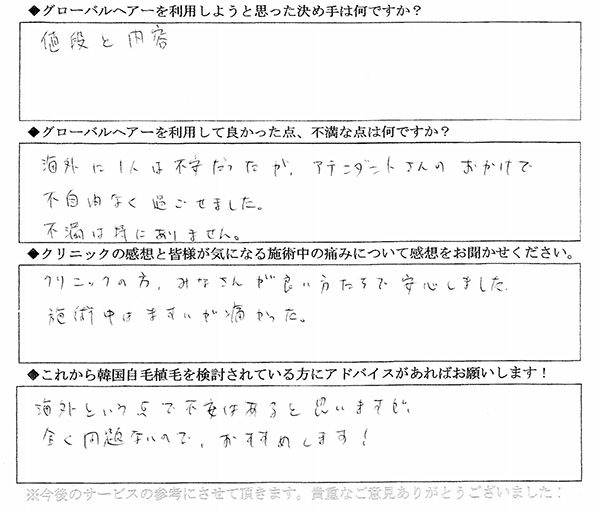 ◆グローバルヘアーを利用しようと思った決め手は何ですか？
値段と内容
◆グローバルヘアーを利用して良かった点、不満な点は何ですか？
海外に1人は不安だったが、アテンダントさんのおかげで
不自由なく過ごせました。
不満は特にありません。
◆クリニックの感想と皆様が気になる施術中の痛みについて感想をお聞かせください。
クリニックの方、みなさんが良い方たちで安心しました.
施術中はますいが痛かった。
◆これから韓国自毛植毛を検討されている方にアドバイスがあればお願いします！
海外という点で不安はあると思いますが、
全く問題ないので、おすすめします！
※今後のサービスの参考にさせて頂きます。貴重なご意見ありがとうございました！